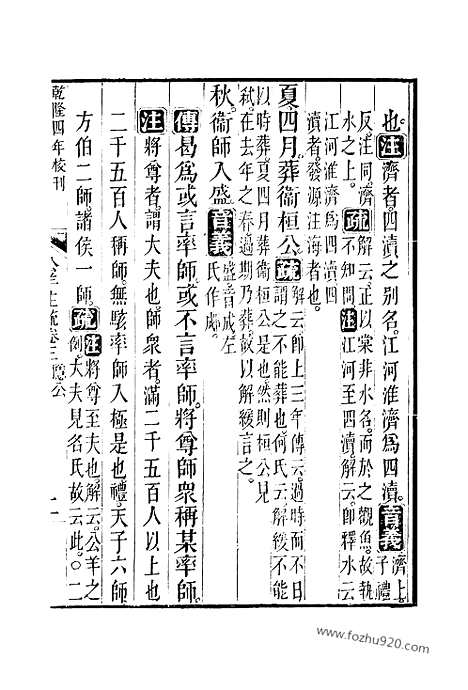 也。注濟者。四瀆之別名。江河淮濟為四瀆。音義濟上子禮
反。注同。濟疏解云。正以棠非水名。而於之觀魚。故執
水之上。不知問注江河至四瀆。解云。即釋水云
江河淮濟為四瀆。四
瀆者。發源注海者也。
夏。四月。葬衛桓公。疏解云。即上三年傳云。過時而不日
謂之不能葬也。何氏云。解緩不能
以時葬。夏四月葬衛桓公是也。然則桓公見
弒。在去年之春。過期乃葬。故以解緩言之。
秋。衛師入盛。音義盛音成。左
氏作郕。
傳曷為或言率師。或不言率師。將尊師衆稱某率師。
注將尊者。謂大夫也。師衆者。滿二千五百人以上也
二千五百人稱師。無駭率師入極是也。禮。天子六師
方伯二師。諸侯一師。疏注將尊至夫也。解云。公羊之
例。大夫見名氏。故云此。〇二
乾隆四年校刊